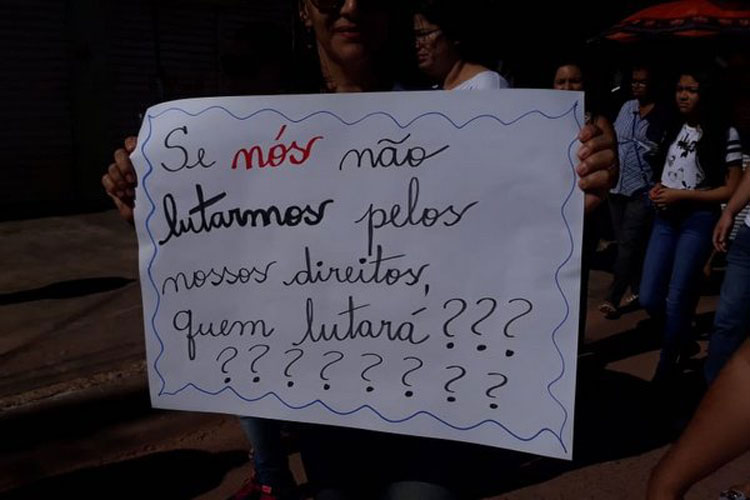 Se nós não
lutarmos pelos
nossos direitos,
quem lutará???
???????